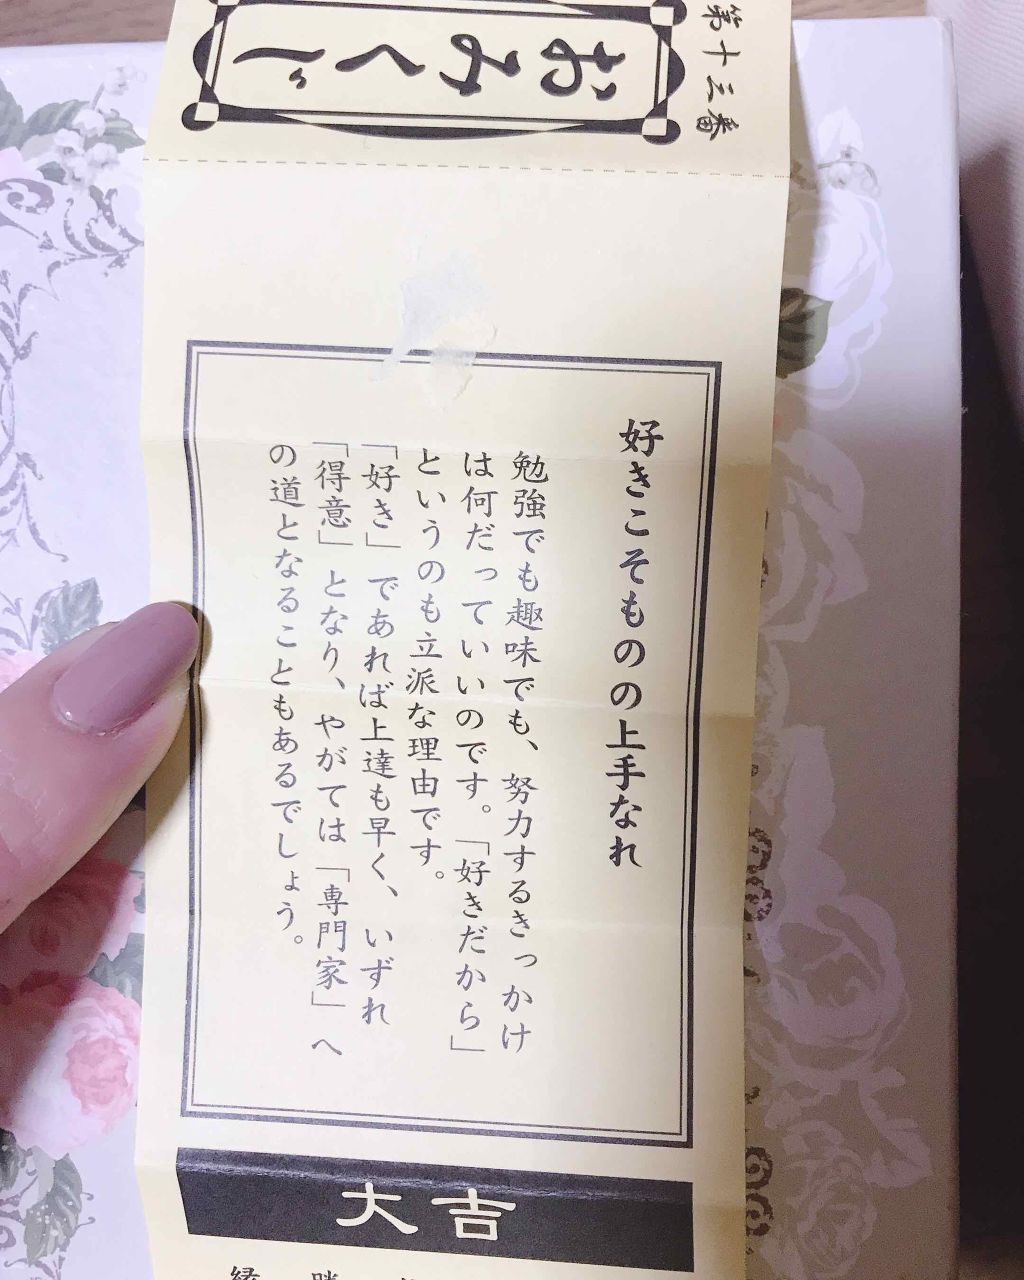 第十三番
おみくじ
好きこそものの上手なれ
勉強でも趣味でも、努力するきっかけ
は何だっていいのです。「好きだから」
というのも立派な理由です。
「好き」であれば上達も早く、いずれ
「得意」となり、やがては「専門家」へ
の道となることもあるでしょう。
大吉